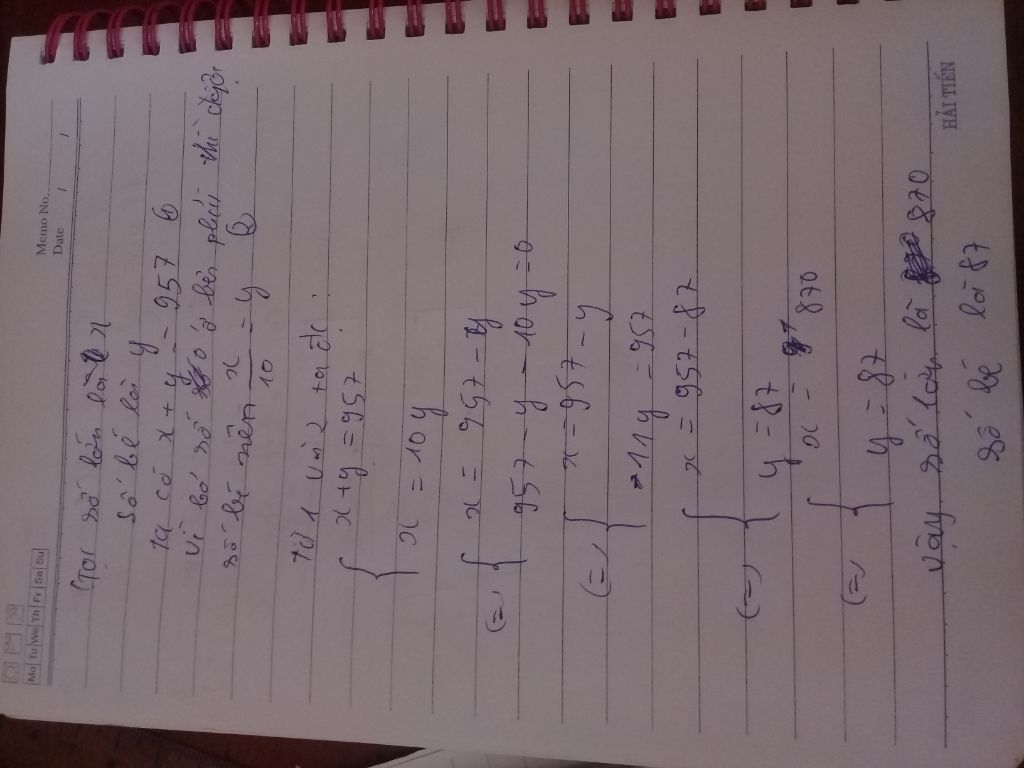 Memo No.
Date / /
Mo Tu We Th Fr Sa Su
Gọi số lớn là x
số bé là y
Ta có x + y = 957 (1)
Vì bỏ số 0 ở bên phải thì được
số bé nên x/10 = y (2)
Từ 1 và 2 ta đc:
{ x + y = 957
x = 10y
(=) { x = 957 - y
957 - y - 10y = 0
(=) { x = 957 - y
-11y = 957
(=) { x = 957 - 87
y = 87
(=) { x = 870
y = 87
Vậy số lớn là 870
số bé là 87
HẢI TIẾN